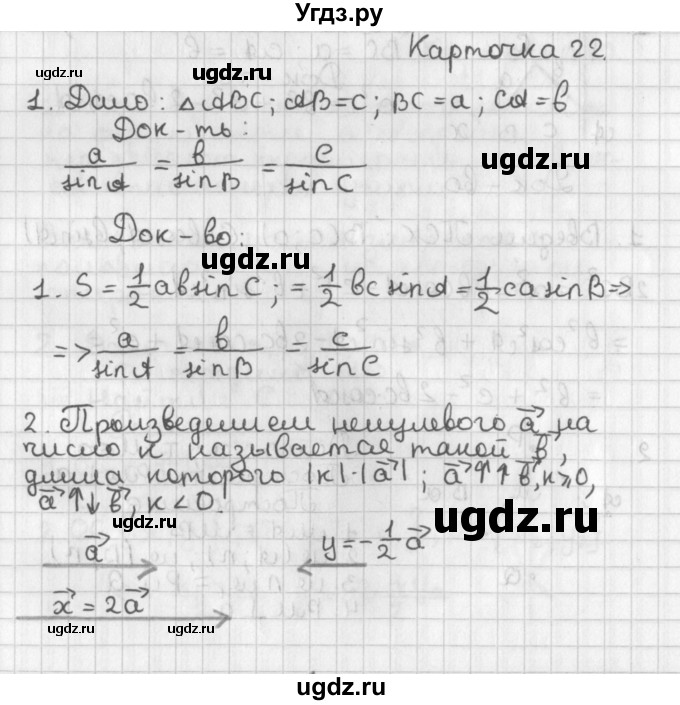 Угдз.ру
Карточка 22.
1. Дано: △ABC; AB=c; BC=a; CA=b
Док-ть:
a/sinA = b/sinB = c/sinC
ugdz.ru
ugdz.ru
Док-во:
ugdz.ru
1. S = 1/2 absinC; = 1/2 bc sinA = 1/2 casinB =>
=> a/sinA = b/sinB = c/sinC
2. Произведением ненулевого a→ на
число k называется такой b→,
длина которого |k|·|a→|; a→↑↑b→, k⩾0,
a→↑↓b→, k<0.
ugdz.ru
a→ y = -1/2 a→
ugdz.ru ugdz.ru
x→ = 2a→
ugdz.ru ugdz.ru
ugdz.ru